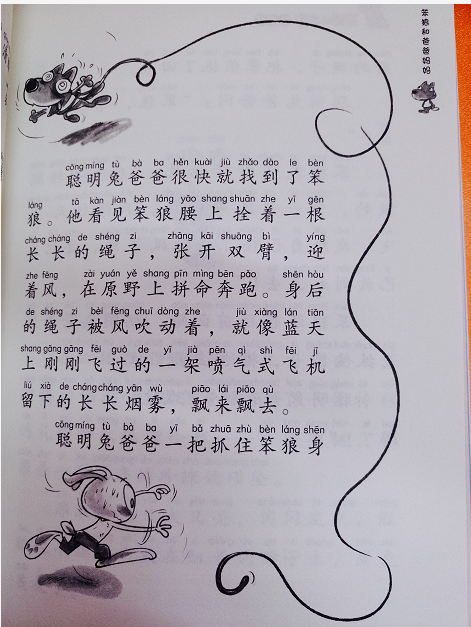 笨狼和爸爸妈妈
cōng míng tù bà ba hěn kuài jiù zhǎo dào le bèn
聪明兔爸爸很快就找到了笨
láng tā kàn jiàn bèn láng yāo shang shuān zhe yī gēn
狼。他看见笨狼腰上拴着一根
cháng cháng de shéng zi zhāng kāi shuāng bì yíng
长长的绳子，张开双臂，迎
zhe fēng zài yuán yě shang pīn mìng bēn pǎo shēn hòu
着风，在原野上拼命奔跑。身后
de shéng zi bèi fēng chuī dòng zhe jiù xiàng lán tiān
的绳子被风吹动着，就像蓝天
shang gāng gāng fēi guò de yī jià pēn qì shì fēi jī
上刚刚飞过的一架喷气式飞机
liú xià de cháng cháng yān wù piāo lái piāo qù
留下的长长烟雾，飘来飘去。
cōng míng tù bà ba yī bǎ zhuā zhù bèn láng shēn
聪明兔爸爸一把抓住笨狼身